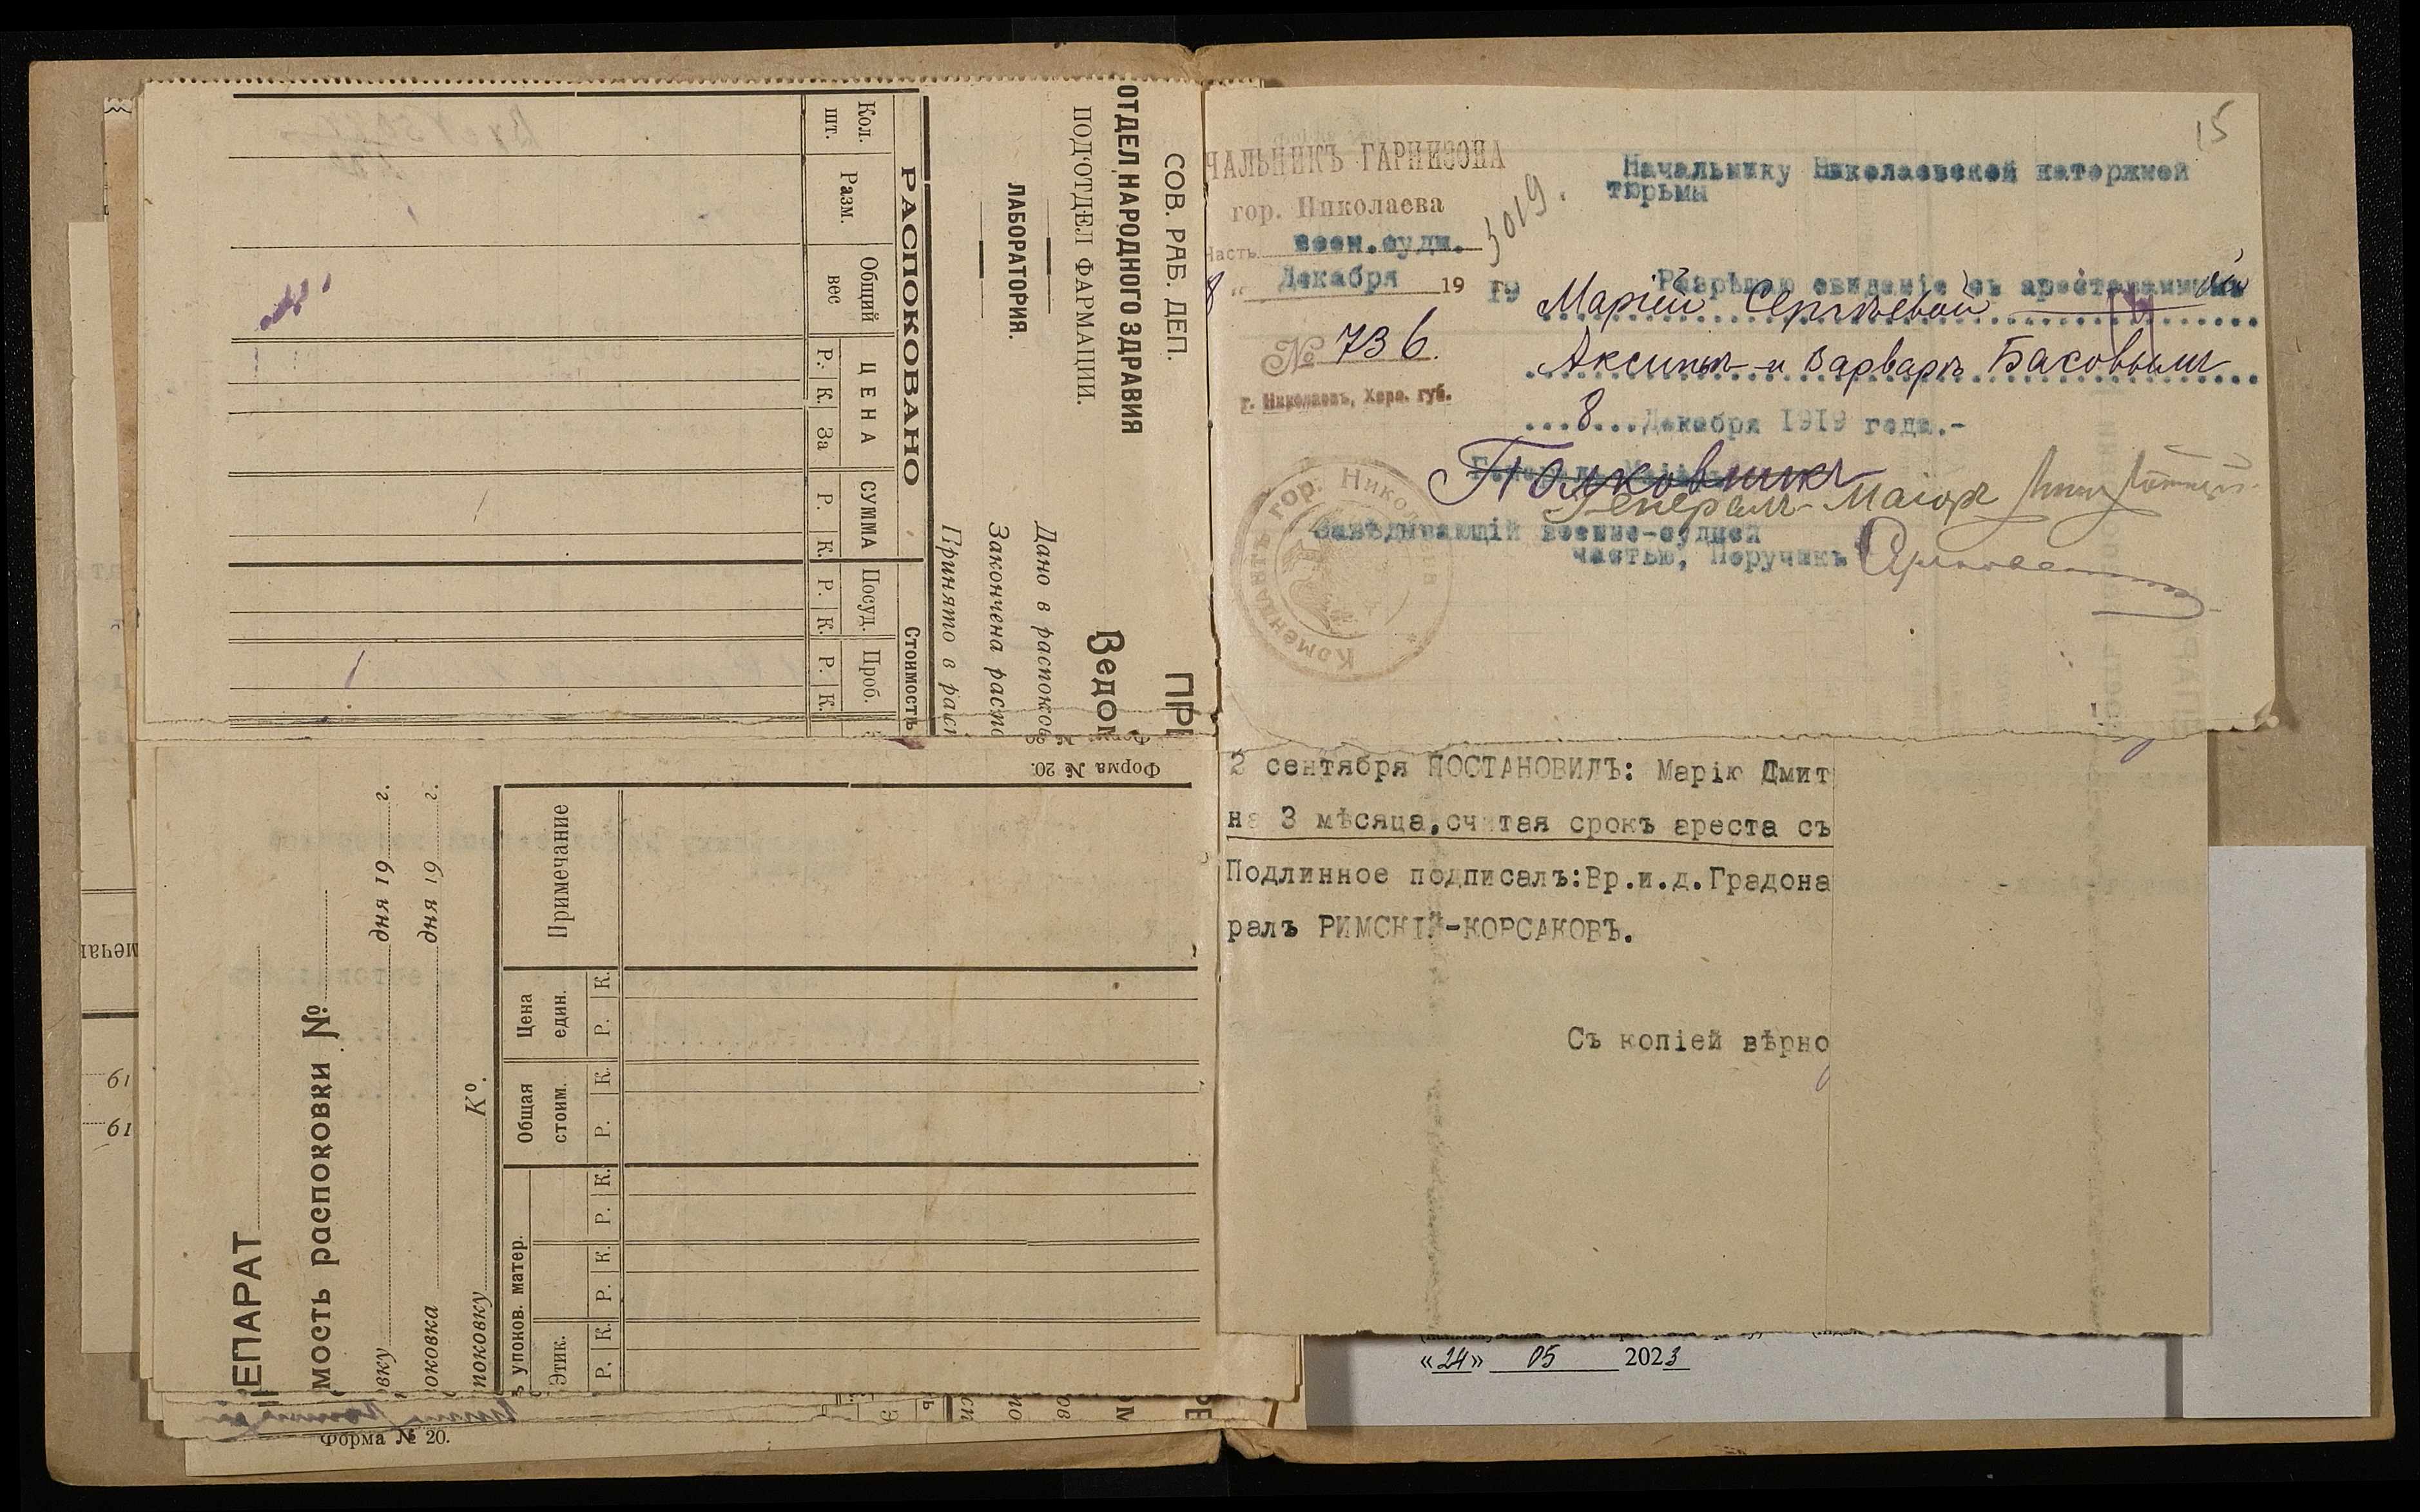 СОВ. РАБ. ДЕП.
ОТДЕЛ НАРОДНОГО ЗДРАВИЯ
ПОД'ОТДЕЛ ФАРМАЦИИ.
ЛАБОРАТОРИЯ.
ПРЕ
Ведом
Дано в распоков
Закончена распо
Принято в расп
РАСПОКОВАНО
Стоимость
Кол. шт.
Разм.
Общий вес
ЦЕНА
СУММА
Посуд.
Проб.
Р. К. За Р. К. Р. К. Р. К.
Форма № 20.
Форма № 20.
ЕПАРАТ
мость распоковки №
вку дня 19 г.
оковка дня 19 г.
поковку К°.
Примечание
Цена един.
Общая стоим.
ъ упоков. матер.
Этик.
Р. К. Р. К. Р. К. Р. К. Р. К.
мечан
19
19
Форма № 20.
15
ЧАЛЬНИКЪ ГАРНИЗОНА
гор. Николаева
Часть воен.судн.
8 „ Декабря 19 19 г.
№ 736.
г. Николаевъ, Херс. губ.
3019.
Начальнику Николаевской каторжной
тюрьмы
Разрѣшаю свиданіе съ арестованными
Маріей Сергѣевой
Аксиньѣ и Варварѣ Баковымъ
...8...Декабря 1919 года.-
Полковникъ
Генералъ-Маіоръ
Завѣдывающій военно-судной
частью, Поручикъ
Комендантъ гор. Николаевъ
2 сентября ПОСТАНОВИЛЪ: Марію Дмит
на 3 мѣсяца,считая срокъ ареста съ
Подлинное подписалъ:Вр.и.д.Градона
ралъ РИМСКІЙ-КОРСАКОВЪ.
Съ копіей вѣрно
«24» 05 2023